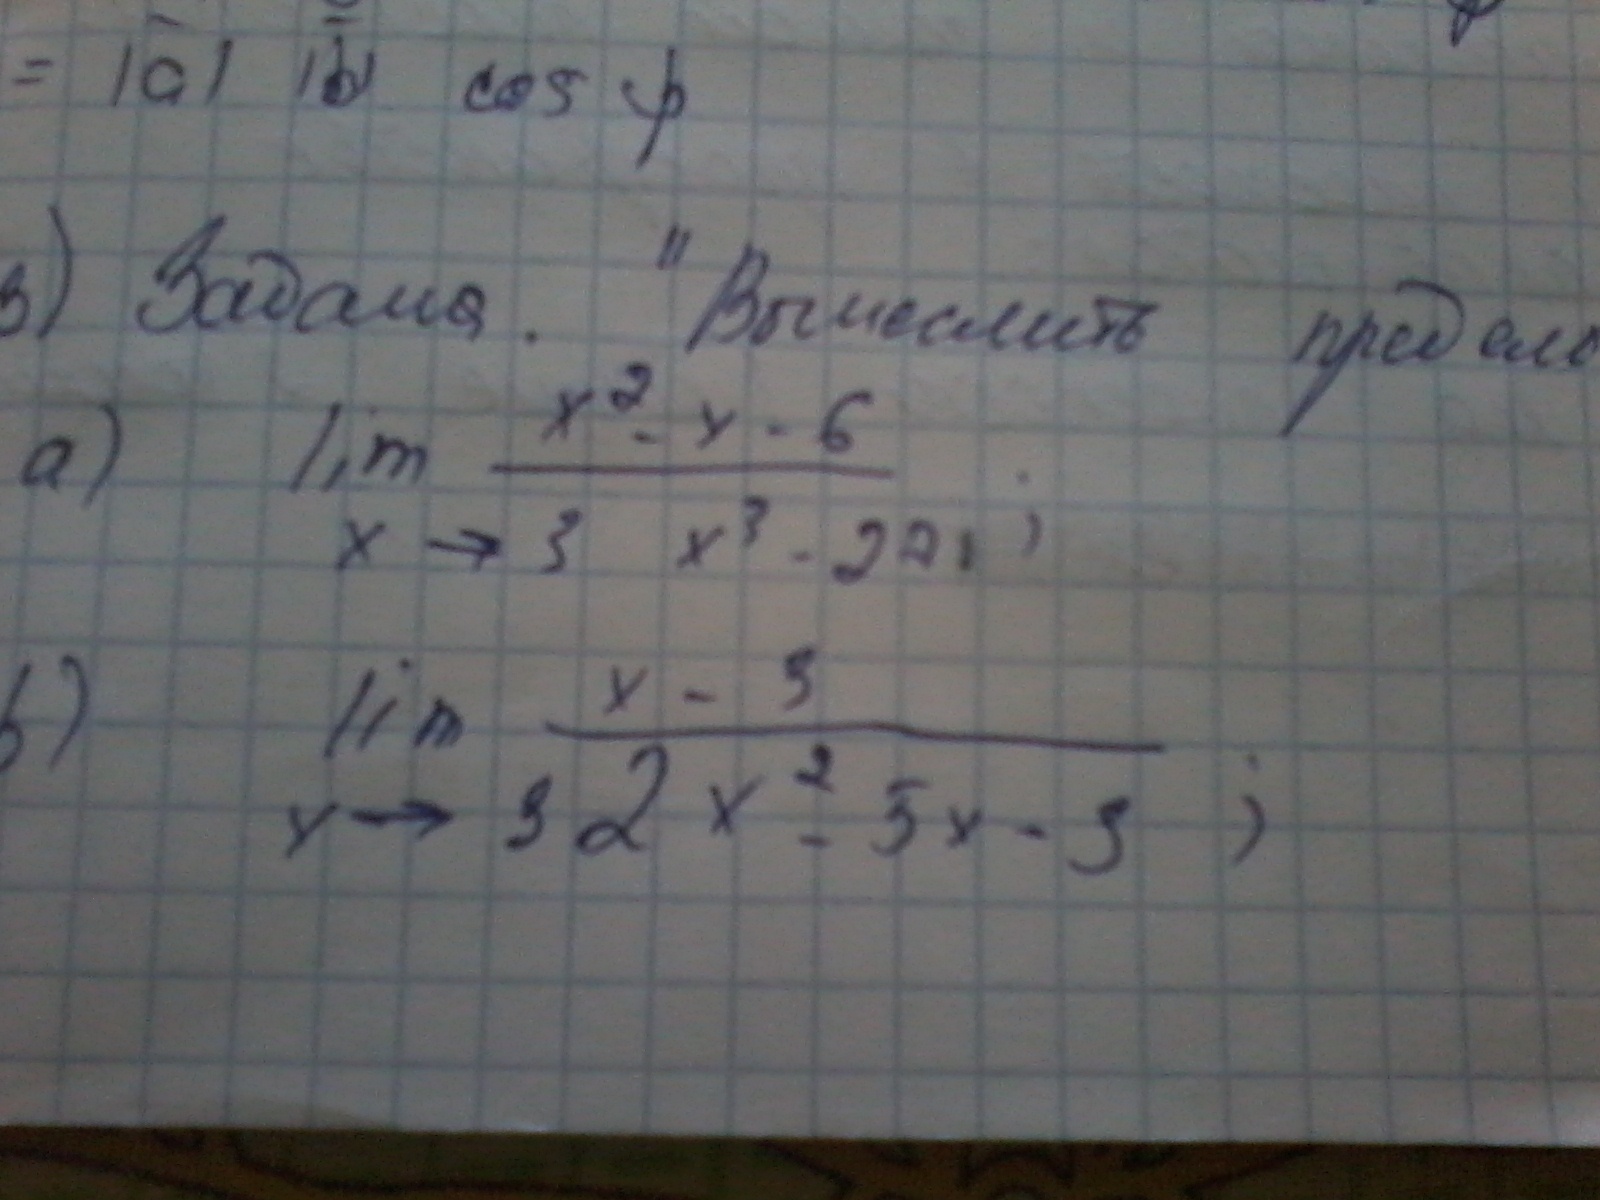 = |a̅| |b̅| cos φ
з) Задача. "Вычеслить предело
a) lim x² - x - 6
x → 3 x³ - 27 ;
b) lim x - 3
x → 3 2x² - 5x - 3 ;